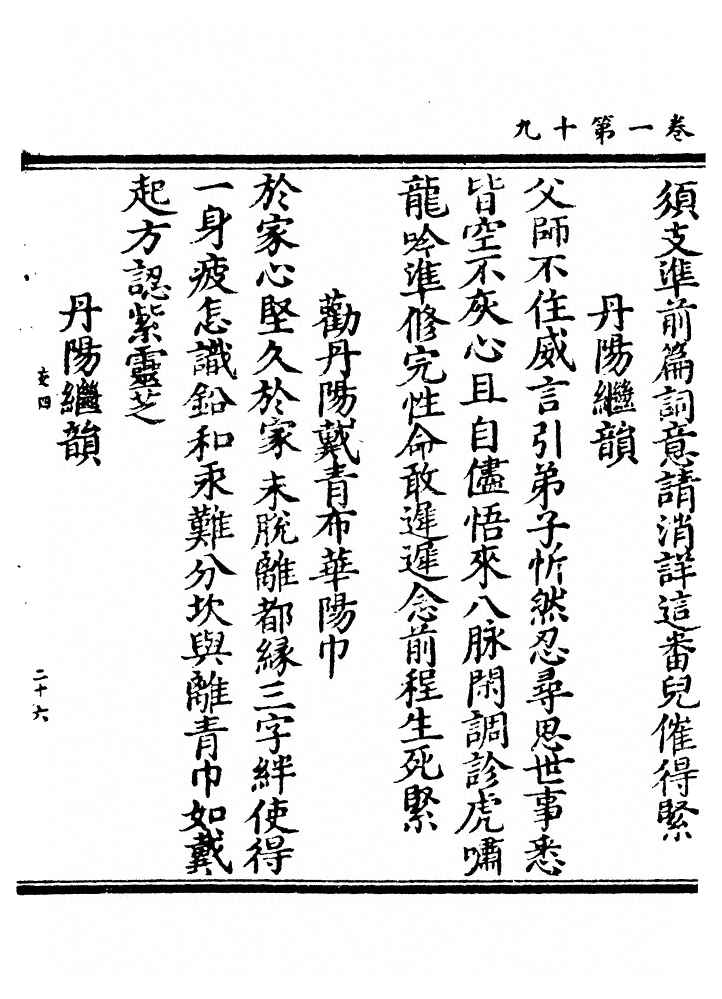 卷一第十九
須支準前篇詞意請消詳這番兒催得緊
丹陽繼韻
父師不住威言引弟子忻然忍尋思世事悉
皆空不灰心且自儘悟來八脉閑調診虎嘯
龍吟準修完性命敢遲遲念前程生死緊
勸丹陽戴青布華陽巾
於家心堅久於家未脫離都緣三字絆使得
一身疲怎識鉛和汞難分坎與離青巾如戴
起方認紫靈芝
丹陽繼韻
交四
二十六